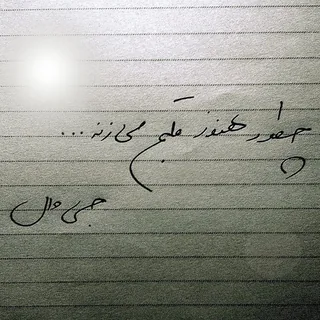 چطور هنوز قلبم می‌زنه ...
جی دال